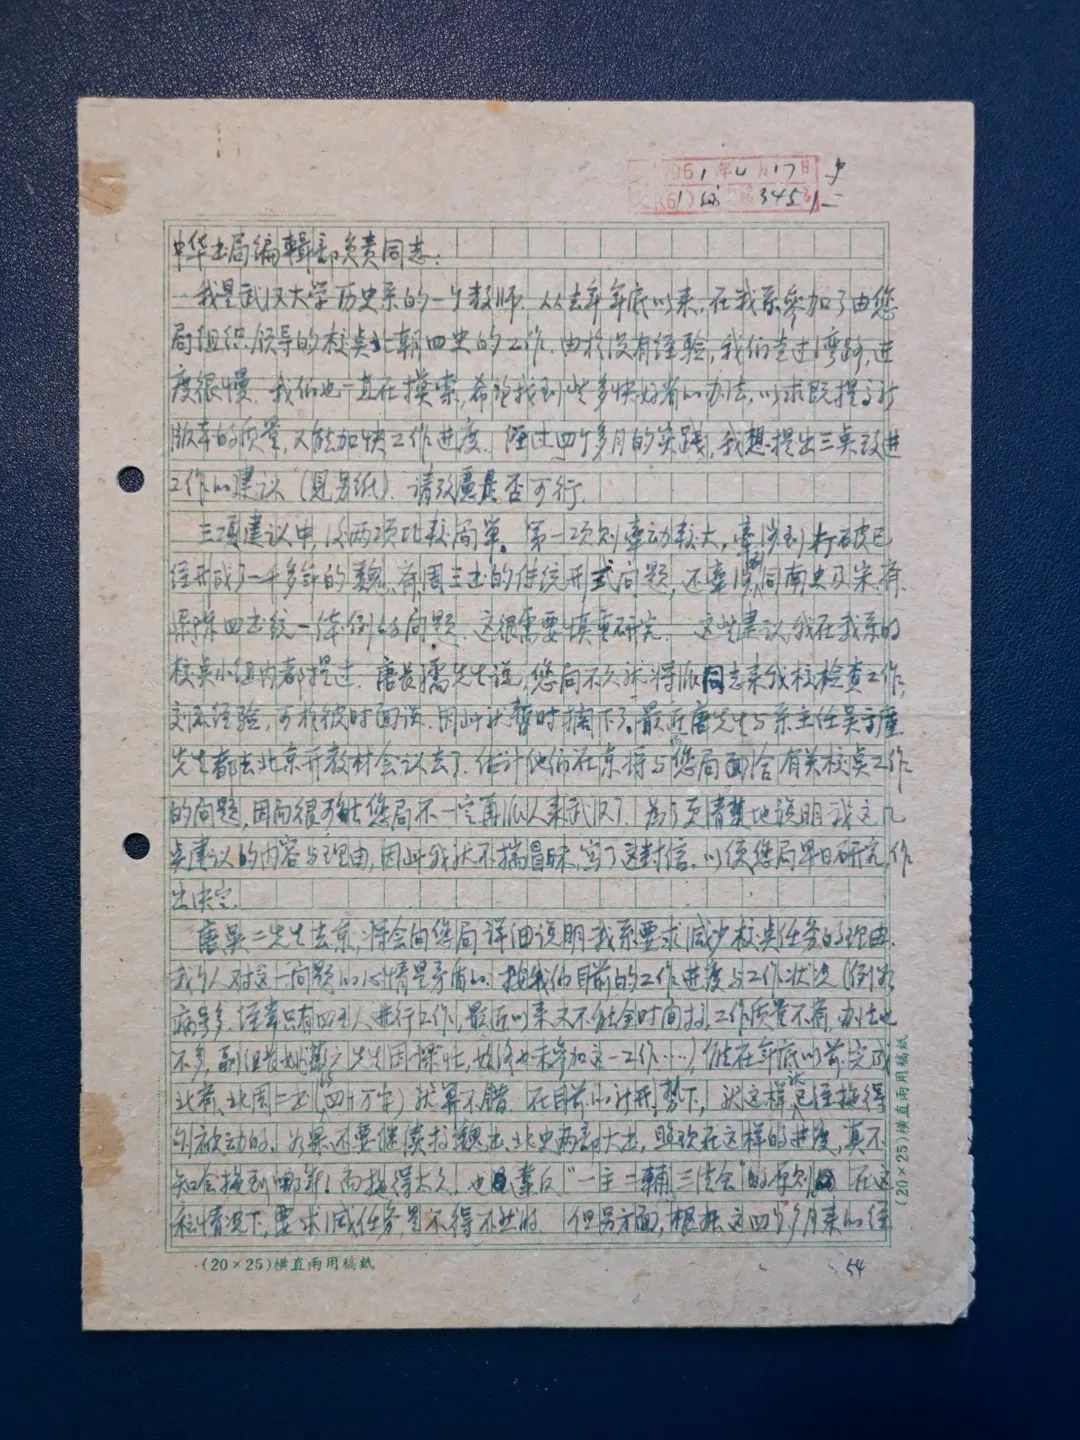 1961年4月17日
(61) 3451
中华书局编辑部负责同志：
我是武汉大学历史系的一个教师。从去年年底以来，在我系参加了由您
局组织领导的校点北朝四史的工作。由于没有经验，我们走过湾路，进
度很慢。我们也一直在摸索，希望找到些多快好省的办法，以求既提高
版本的质量，又能加快工作进度。经过四个多月的实践，我想提出三点改进
工作的建议（见另纸）。请考虑是否可行。
三项建议中，后两项比较简单。第一项则牵动较大，牵涉到打破已
经形成了一千多年的魏、齐、周三书的传统形式问题，还牵涉到同南史及宋、齐、
梁、陈四书统一体例的问题。这很需要慎重研究。这些建议，我在我系的
校点小组内都提过。唐长孺先生说，您局不久就将派同志来我校检查工作，
交流经验，可于彼时面谈。因此就暂时搁下了。最近唐先生与系主任吴于廑
先生都去北京开教材会议去了。估计他们在京将与您局面洽有关校点工作
的问题，因而很可能您局不一定再派人来武汉了。为了更清楚地说明我这几
点建议的内容与理由，因此我就不揣冒昧，写了这封信。以便您局早日研究，作
出决定。
唐吴二先生去京，将会向您局详细说明我系要求减少校点任务的理由。
我个人对这一问题的心情是矛盾的。按我们目前的工作进度与工作状况（例如
病号多，经常只有四五人进行工作，最近以来又不能全时间搞，工作质量不高，办法也
不多，副组长姚薇元先生因课忙，始终也未参加这一工作……）能在年底以前完成
北齐、北周二书（四十万字）就算不错。在目前的计形势下，就这样已经拖得
够被动的。如果还要继续搞魏书、北史两部大书，照现在这样的进度，真不
知会拖到哪年！而拖得太久，也违反“一主二辅三结合”的原则。在这
种情况下，要求减任务是不得不然的。但另方面，根据这四个多月来的经
(20×25)横直两用稿纸
(20×25)横直两用稿纸
54